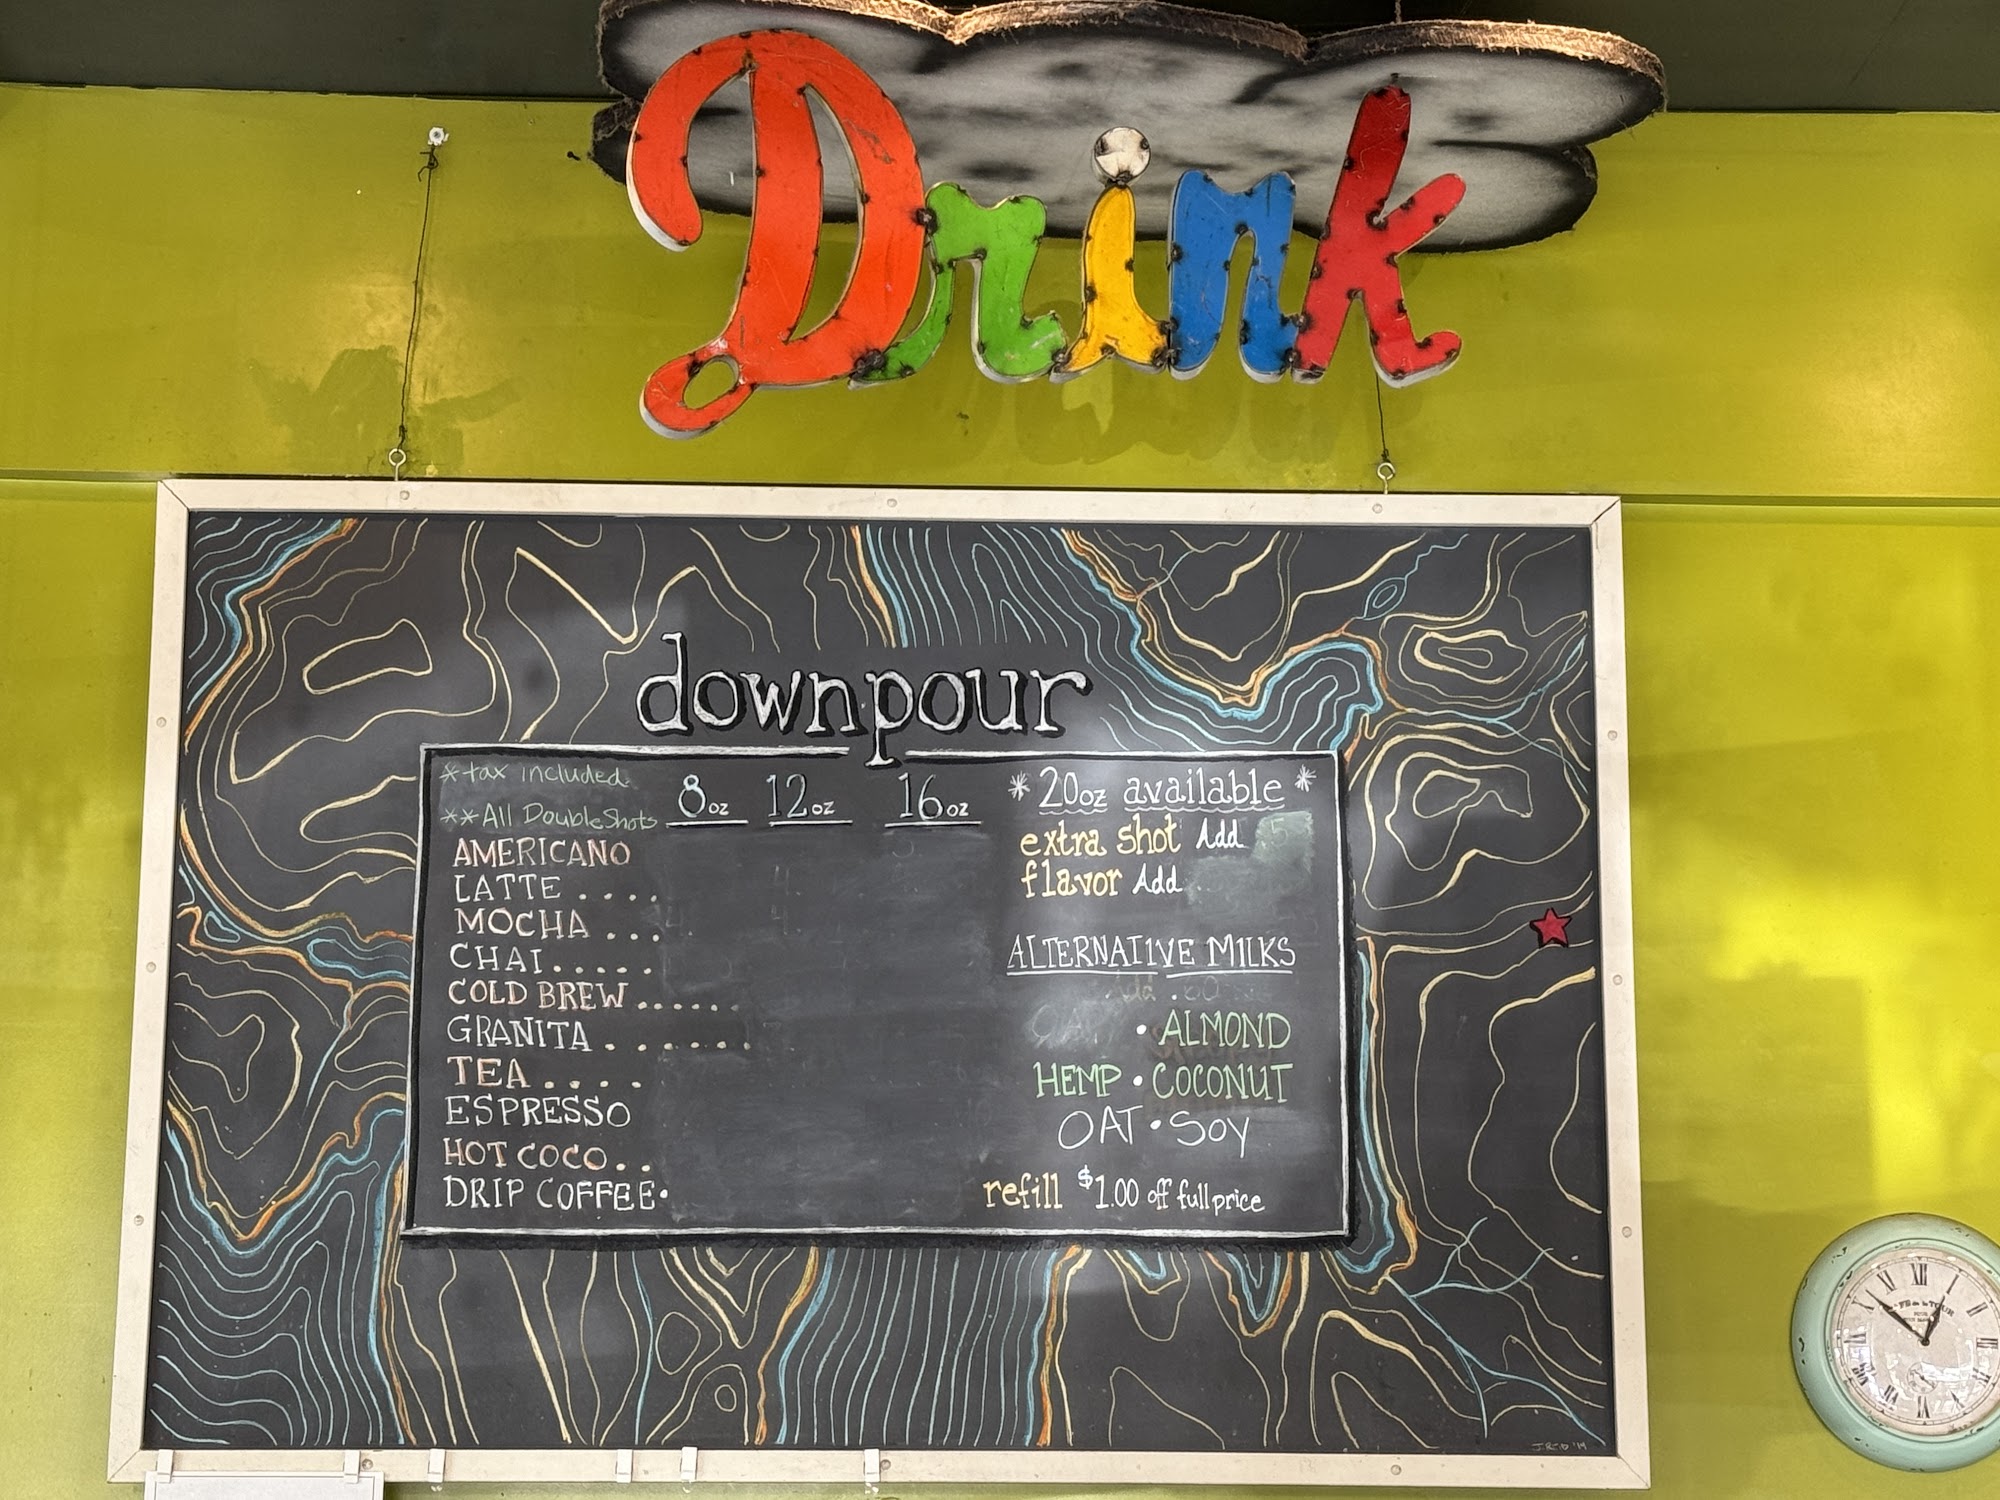 Drink
downpour
*tax included
**All Double Shots
8oz 12oz 16oz
AMERICANO
LATTE ....
MOCHA ...
CHAI.....
COLD BREW......
GRANITA .......
TEA ....
ESPRESSO
HOT COCO..
DRIP COFFEE.
* 20oz available *
extra shot Add
flavor Add
ALTERNATIVE MILKS
Add .60
• ALMOND
HEMP • COCONUT
OAT • SOY
refill $1.00 off full price
XII